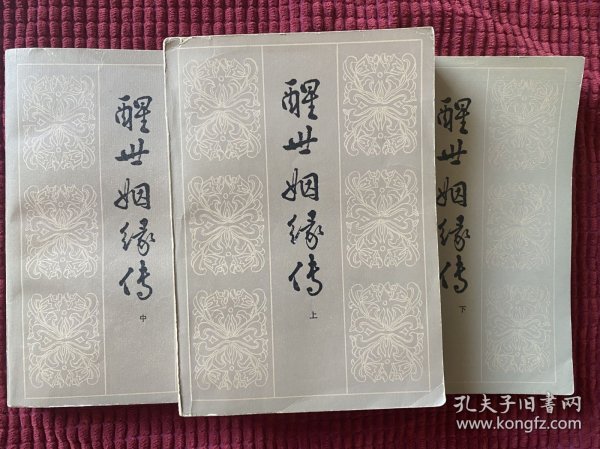 醒世姻缘传
中
醒世姻缘传
上
醒世姻缘传
下
孔夫子旧书网
www.kongfz.com